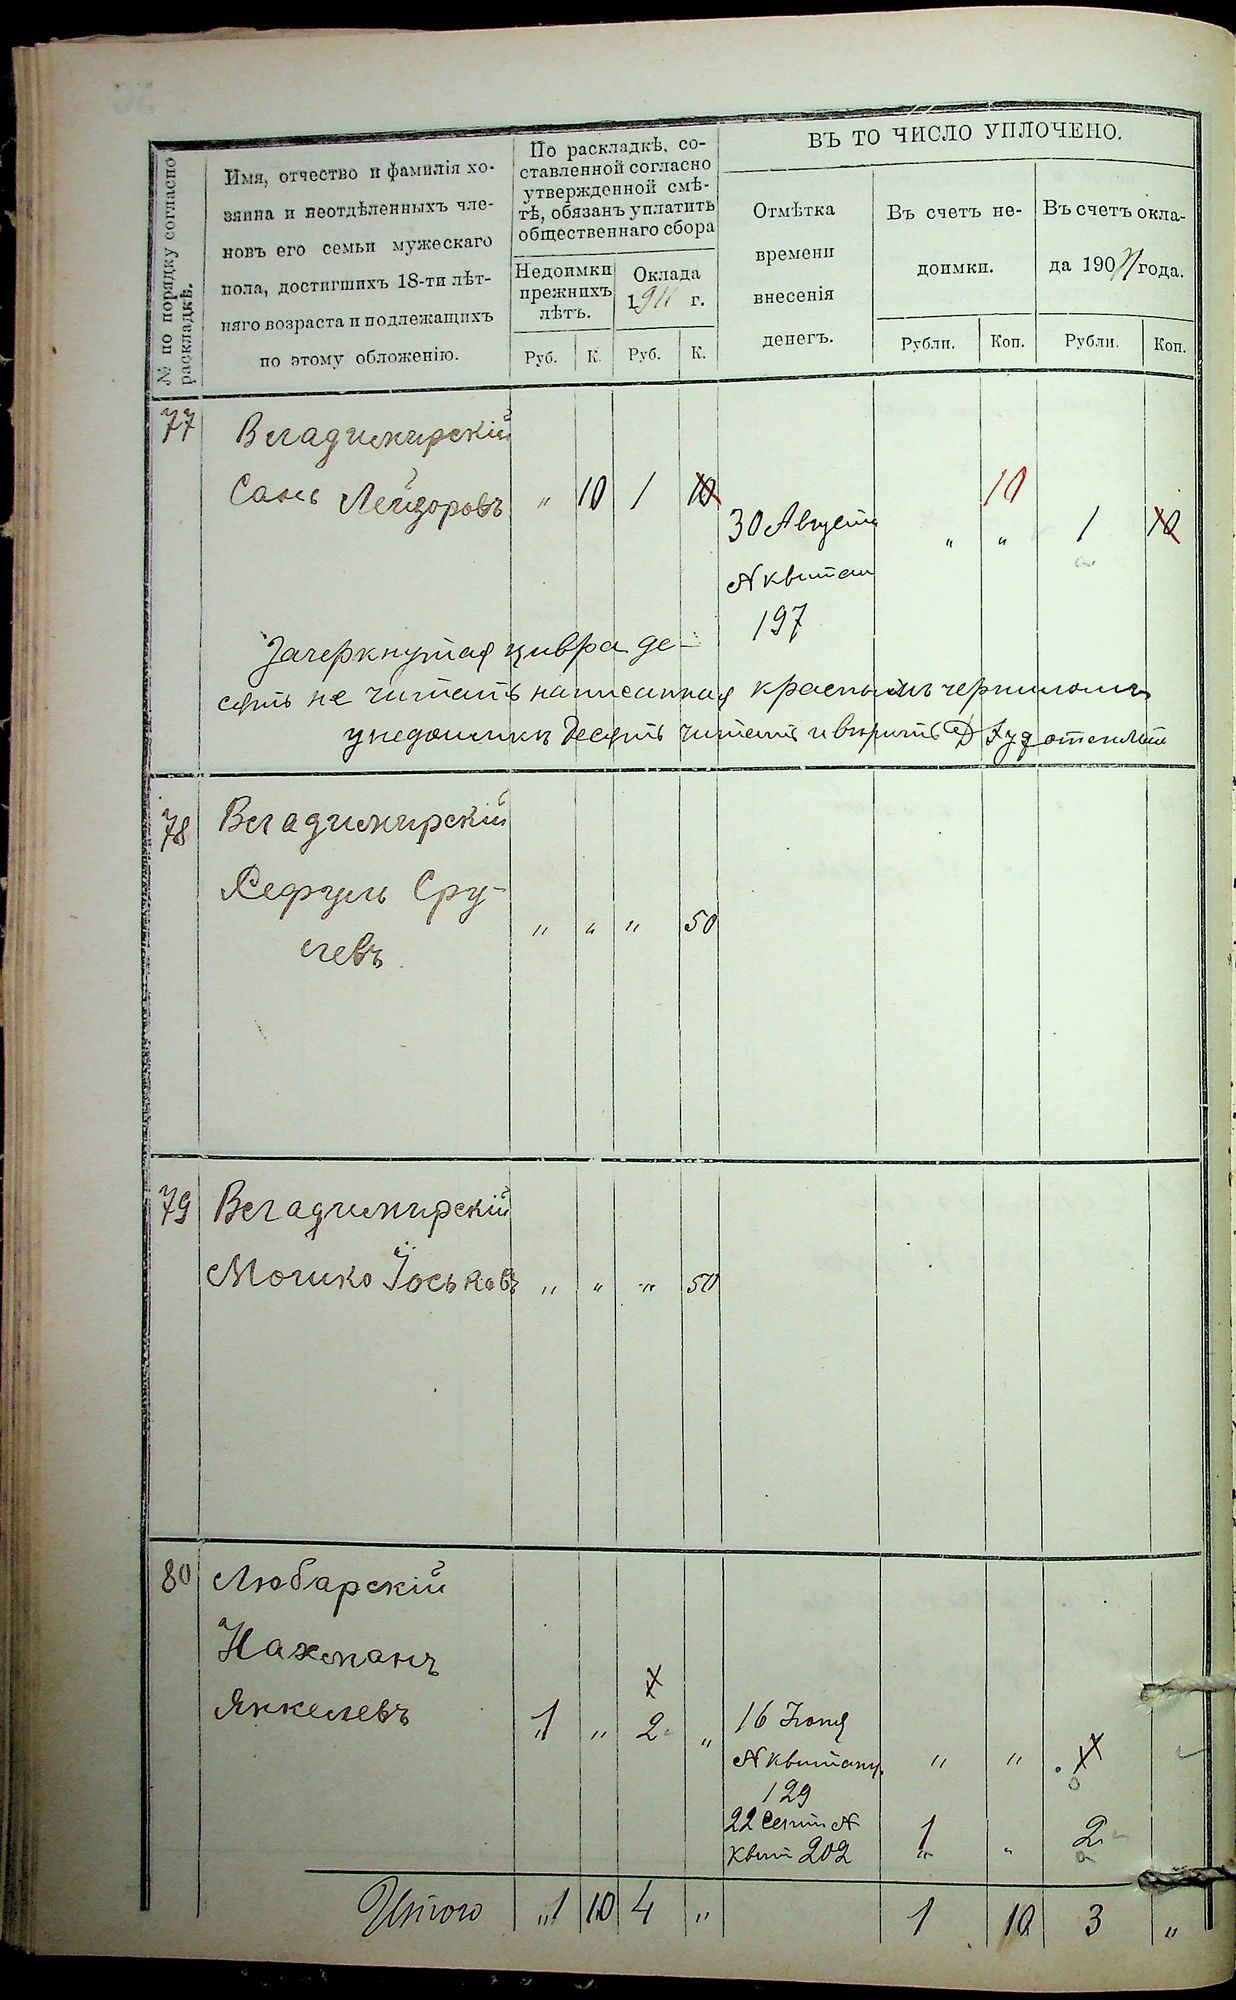 № по порядку согласно
раскладкѣ.
Имя, отчество и фамилія хо-
зяина и неотдѣленныхъ чле-
новъ его семьи мужескаго
пола, достигшихъ 18-ти лѣт-
няго возраста и подлежащихъ
по этому обложенію.
По раскладкѣ, со-
ставленной согласно
утвержденной смѣ-
тѣ, обязанъ уплатить
общественнаго сбора
Недоимки
прежнихъ
лѣтъ.
Оклада
1911 г.
Руб. К. Руб. К.
ВЪ ТО ЧИСЛО УПЛОЧЕНО.
Отмѣтка
времени
внесенія
денегъ.
Въ счетъ не-
доимки.
Въ счетъ окла-
да 1911 года.
Рубли. Коп. Рубли. Коп.
77 Владимирскій
Сань Лейзоровъ „ 10 1 10 10
30 Августа „ „ 1 10
№ квитан
197
Зачеркнутая цивра де-
сять не читать написанная красными чернилами
у недоимки десять читать и вѣрить
78 Владимирскій
Сру-
левъ „ „ „ 50
79 Владимирскій
Мошко Іоськовъ „ „ „ 50
80 Любарскій
Нахманъ
Янкелевъ 1 „ 2 „ 16 Іюня
№ квитанц. „ „
129
22 Сент №
квит 202 1 „ 2
Итого „1 10 4 „ 1 10 3 „